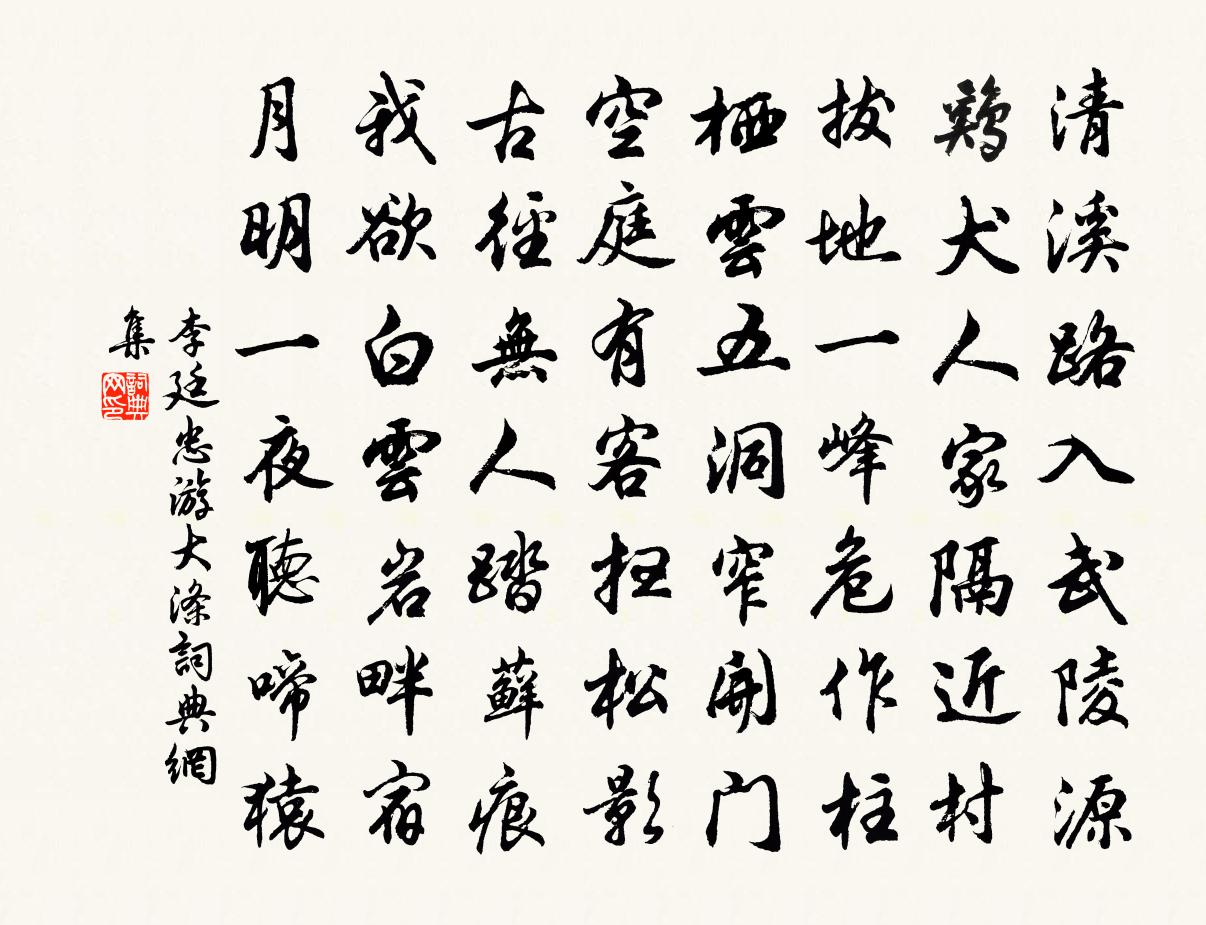 清溪路入武陵源
鷄犬人家隔近村
拔地一峰危作柱
栖雲五洞窄開门
空庭有客扫松影
古徑無人踏蘚痕
我欲白雲岩畔宿
月明一夜聽啼猿
李廷忠游大滌詞典網
集
詞典网印